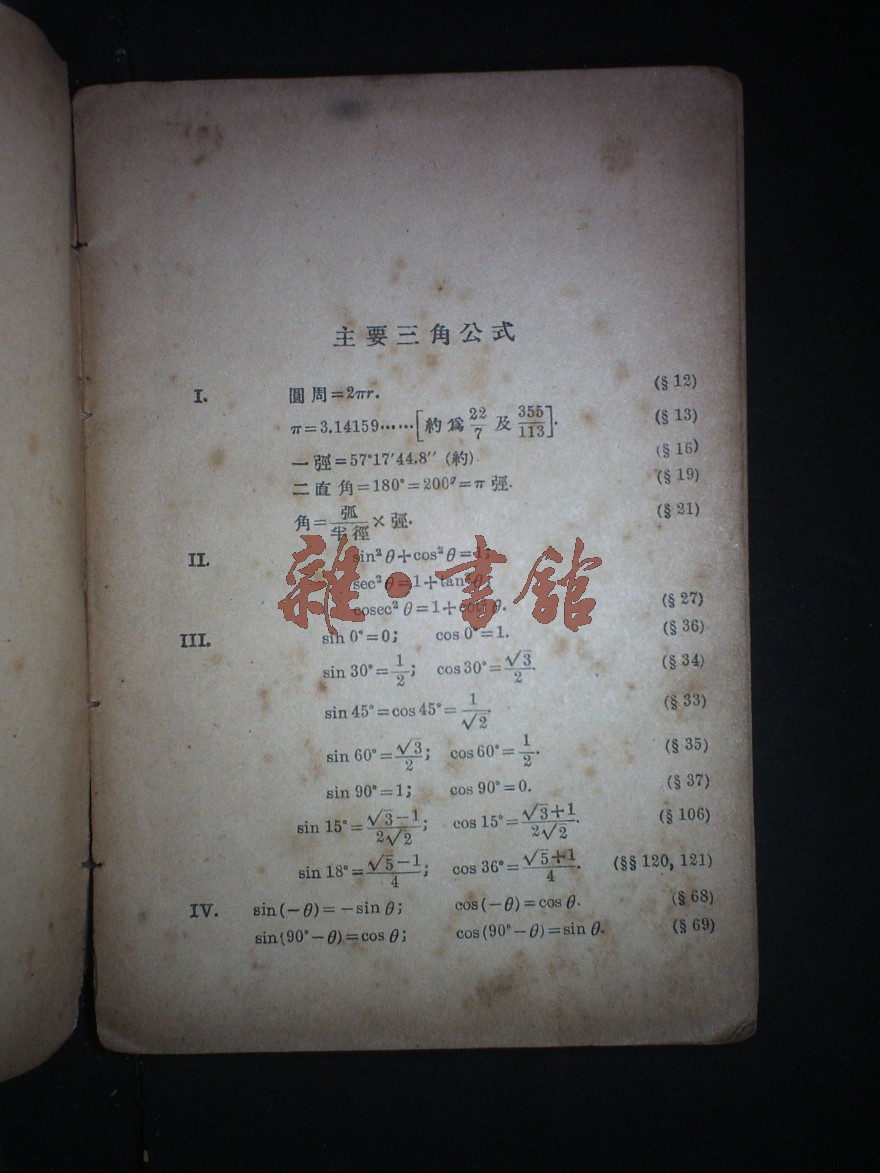 主要三角公式
I. 圓周=2πr. (§ 12)
π=3.14159……[約爲 22/7 及 355/113]. (§ 13)
一弳=57°17′44.8″ (約). (§ 16)
二直角=180°=200ᵍ=π 弳. (§ 19)
角=弧/半徑×弳. (§ 21)
II. sin² θ+cos² θ=1;
sec² θ=1+tan² θ;
cosec² θ=1+cot² θ. (§ 27)
雜·書館
III. sin 0°=0; cos 0°=1. (§ 36)
sin 30°=1/2; cos 30°=√3/2. (§ 34)
sin 45°=cos 45°=1/√2. (§ 33)
sin 60°=√3/2; cos 60°=1/2. (§ 35)
sin 90°=1; cos 90°=0. (§ 37)
sin 15°=(√3−1)/(2√2); cos 15°=(√3+1)/(2√2). (§ 106)
sin 18°=(√5−1)/4; cos 36°=(√5+1)/4. (§§ 120, 121)
IV. sin(−θ)=−sin θ; cos(−θ)=cos θ. (§ 68)
sin(90°−θ)=cos θ; cos(90°−θ)=sin θ. (§ 69)